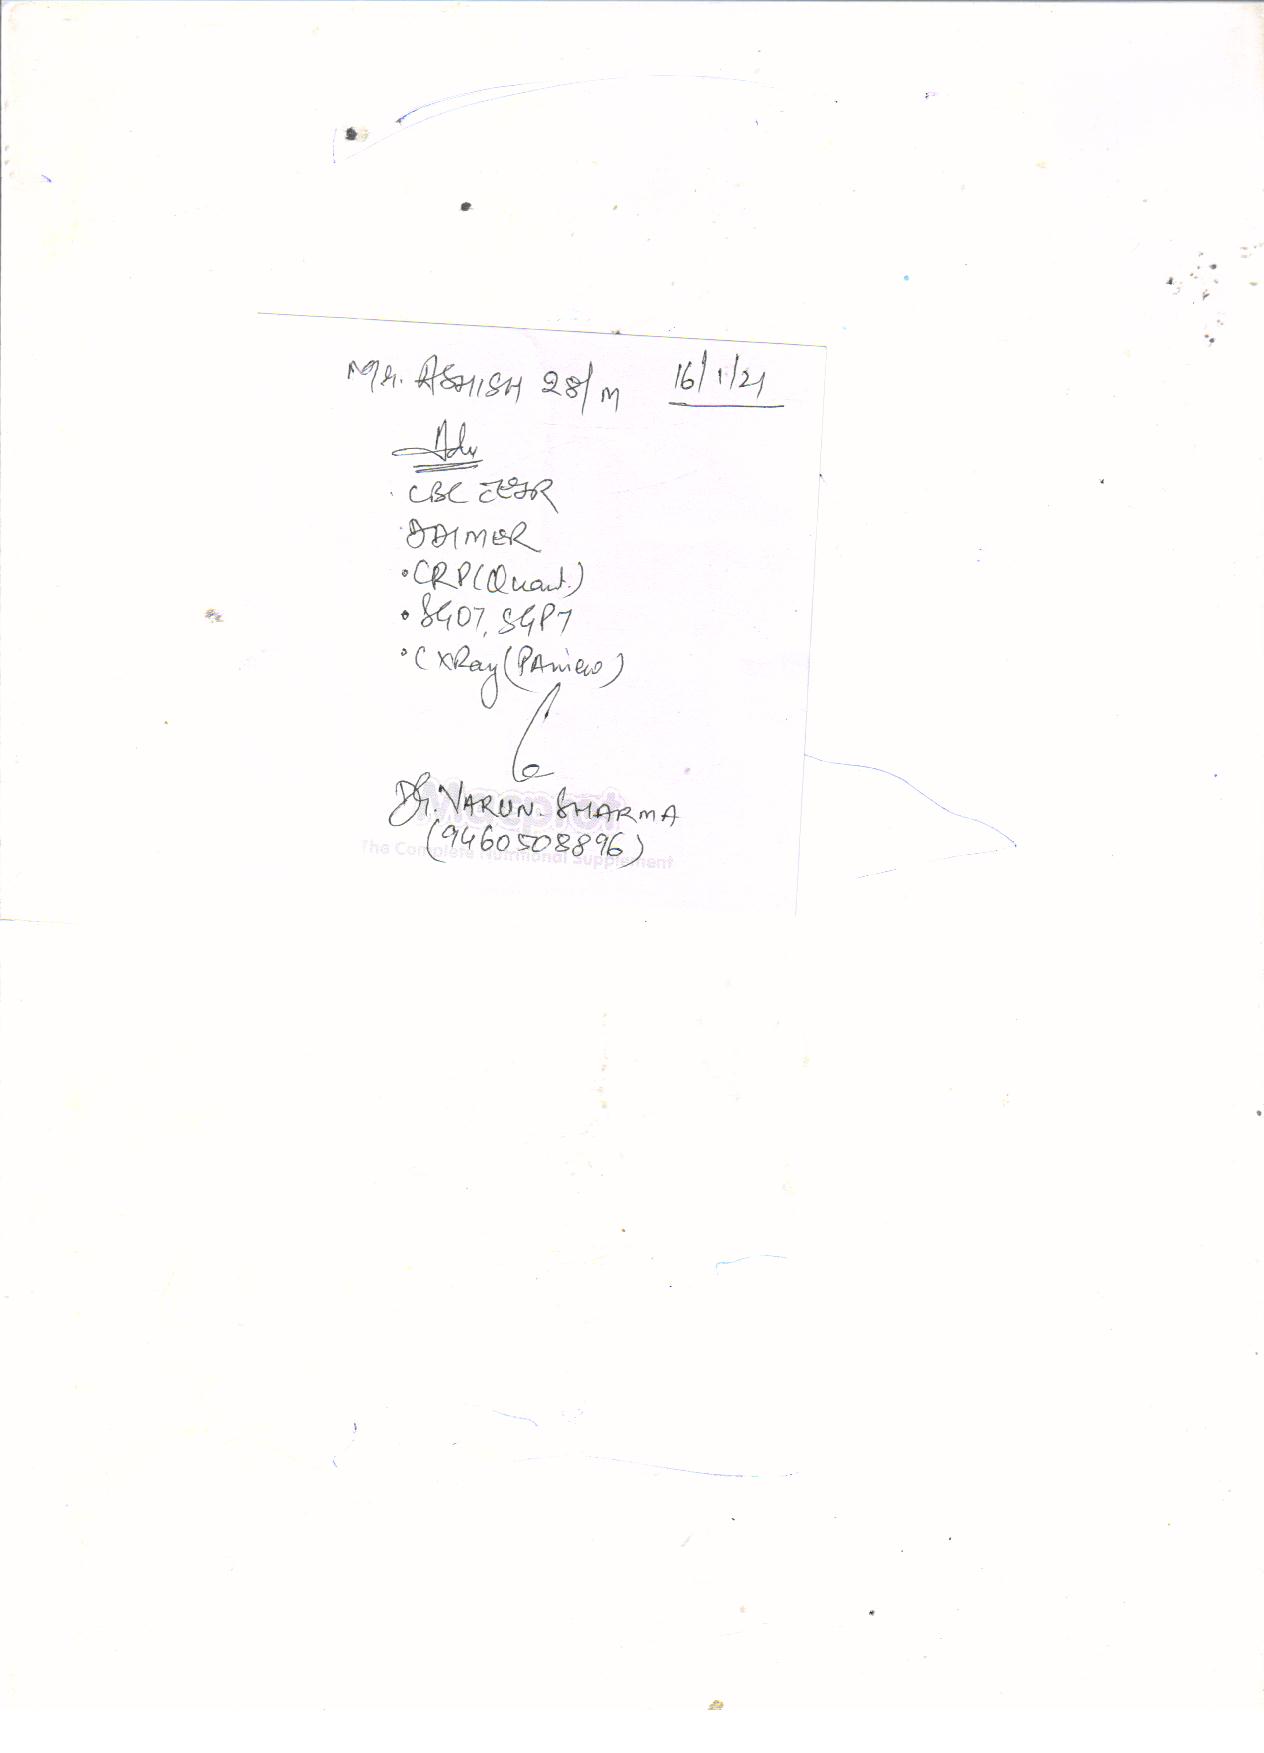 Mr. ASHISH 28/M 16/1/21
Adv
· CBC c̄ ESR
· DDIMER
• CRP (Quant.)
• SGOT, SGPT
• CXRay (PA view)
Dr. VARUN SHARMA
(9460508896)
The Complete Nutritional Supplement